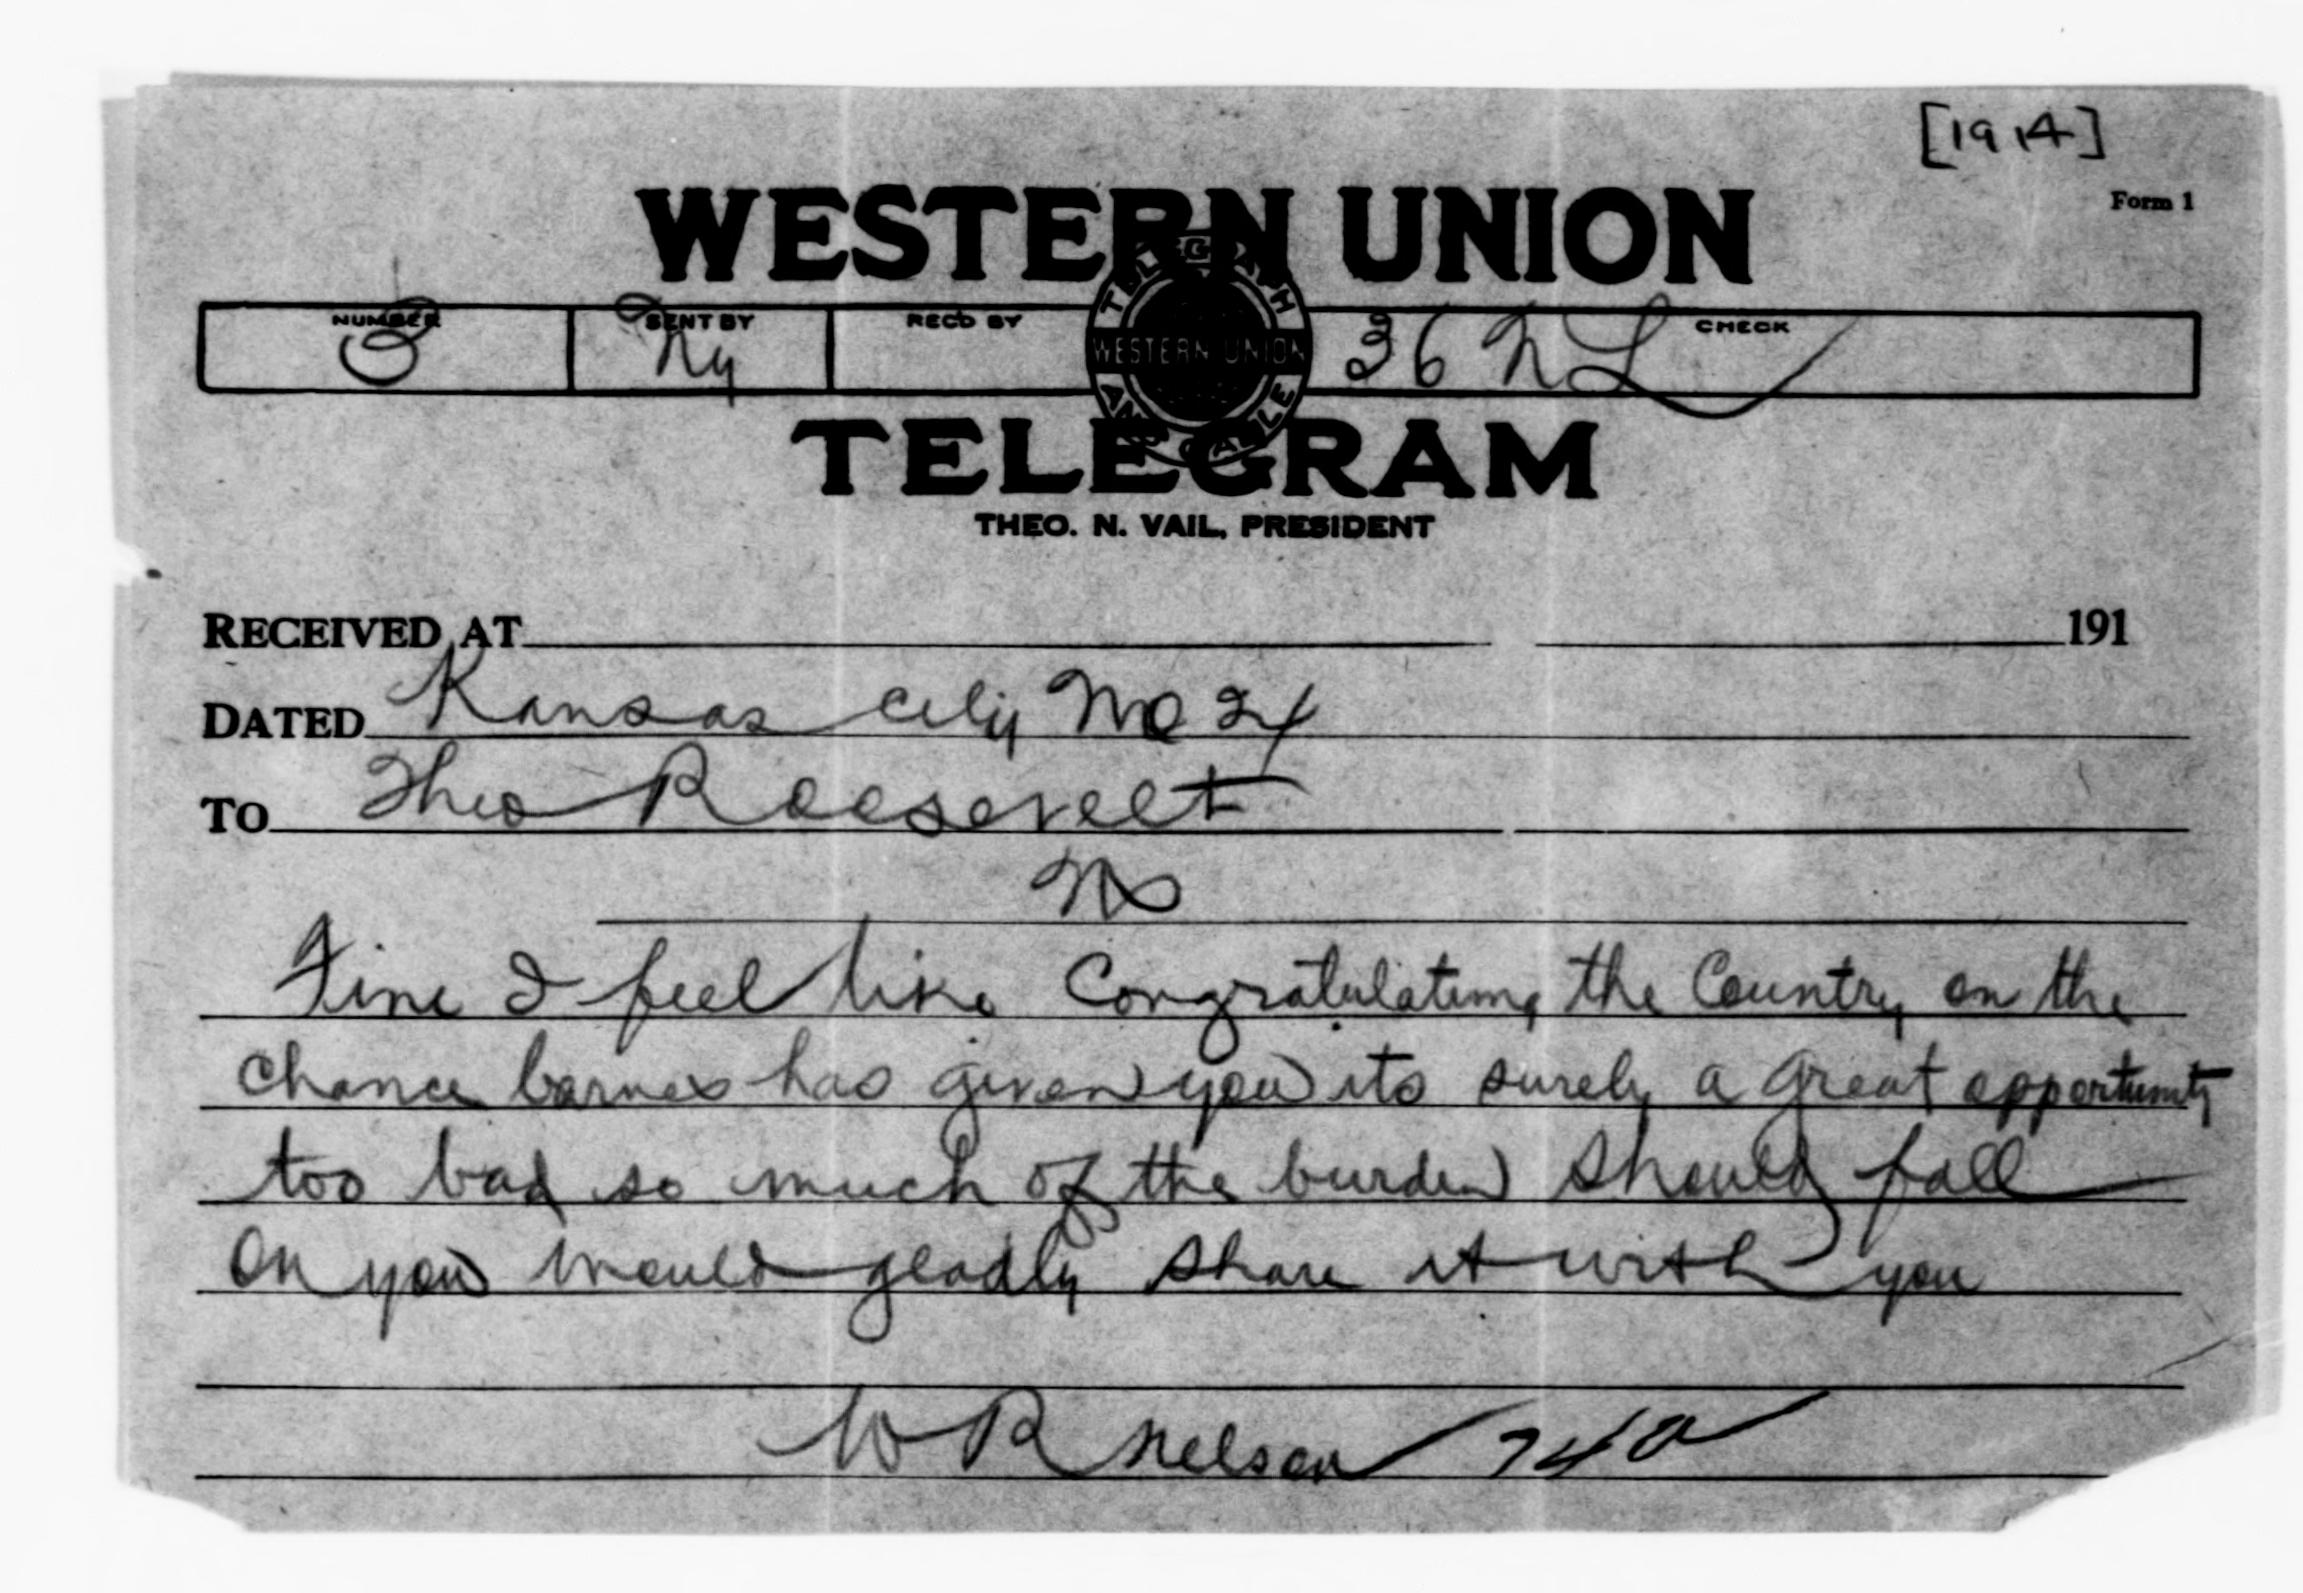 [1914]
Form 1
WESTERN UNION
TELEGRAPH AND CABLE
WESTERN UNION
NUMBER
SENT BY
REC'D BY
CHECK
Ny
36 NL
TELEGRAM
THEO. N. VAIL, PRESIDENT
RECEIVED AT
191
DATED Kansas City Mo 24
TO Theo Roosevelt
Fine I feel like Congratulating the Country on the
chance barnes has given you its surely a great opportunity
too bad so much of the burden should fall
on you would gladly share it with you
W R Nelson